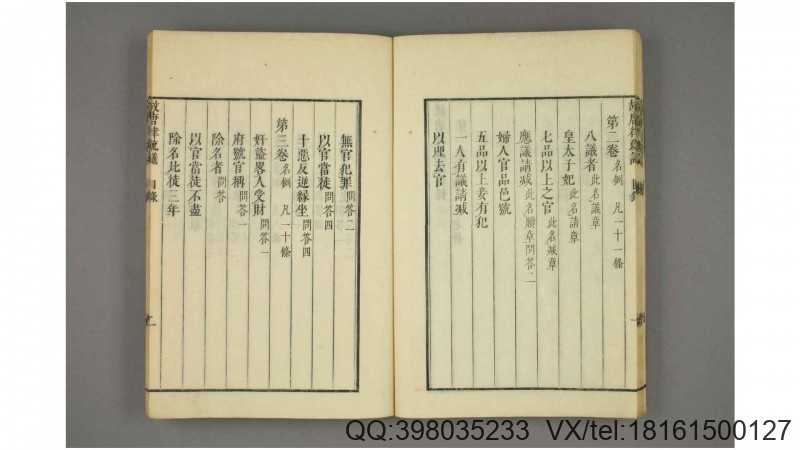 第二卷 名例 凡一十一條
八議者 此名議章
皇太子妃 此名請章
七品以上之官 此名減章
應議請減 此名贖章問答二
婦人官品邑號
五品以上妾有犯
一人有議請減
以理去官
無官犯罪 問答二
以官當徒 問答四
十惡反逆緣坐 問答四
第三卷 名例 凡一十條
姧盜畧人受財 問答一
府號官稱 問答一
除名者 問答
以官當徒不盡
除名比徒三年
故唐律疏議 目錄
QQ:398035233 VX/tel:18161500127